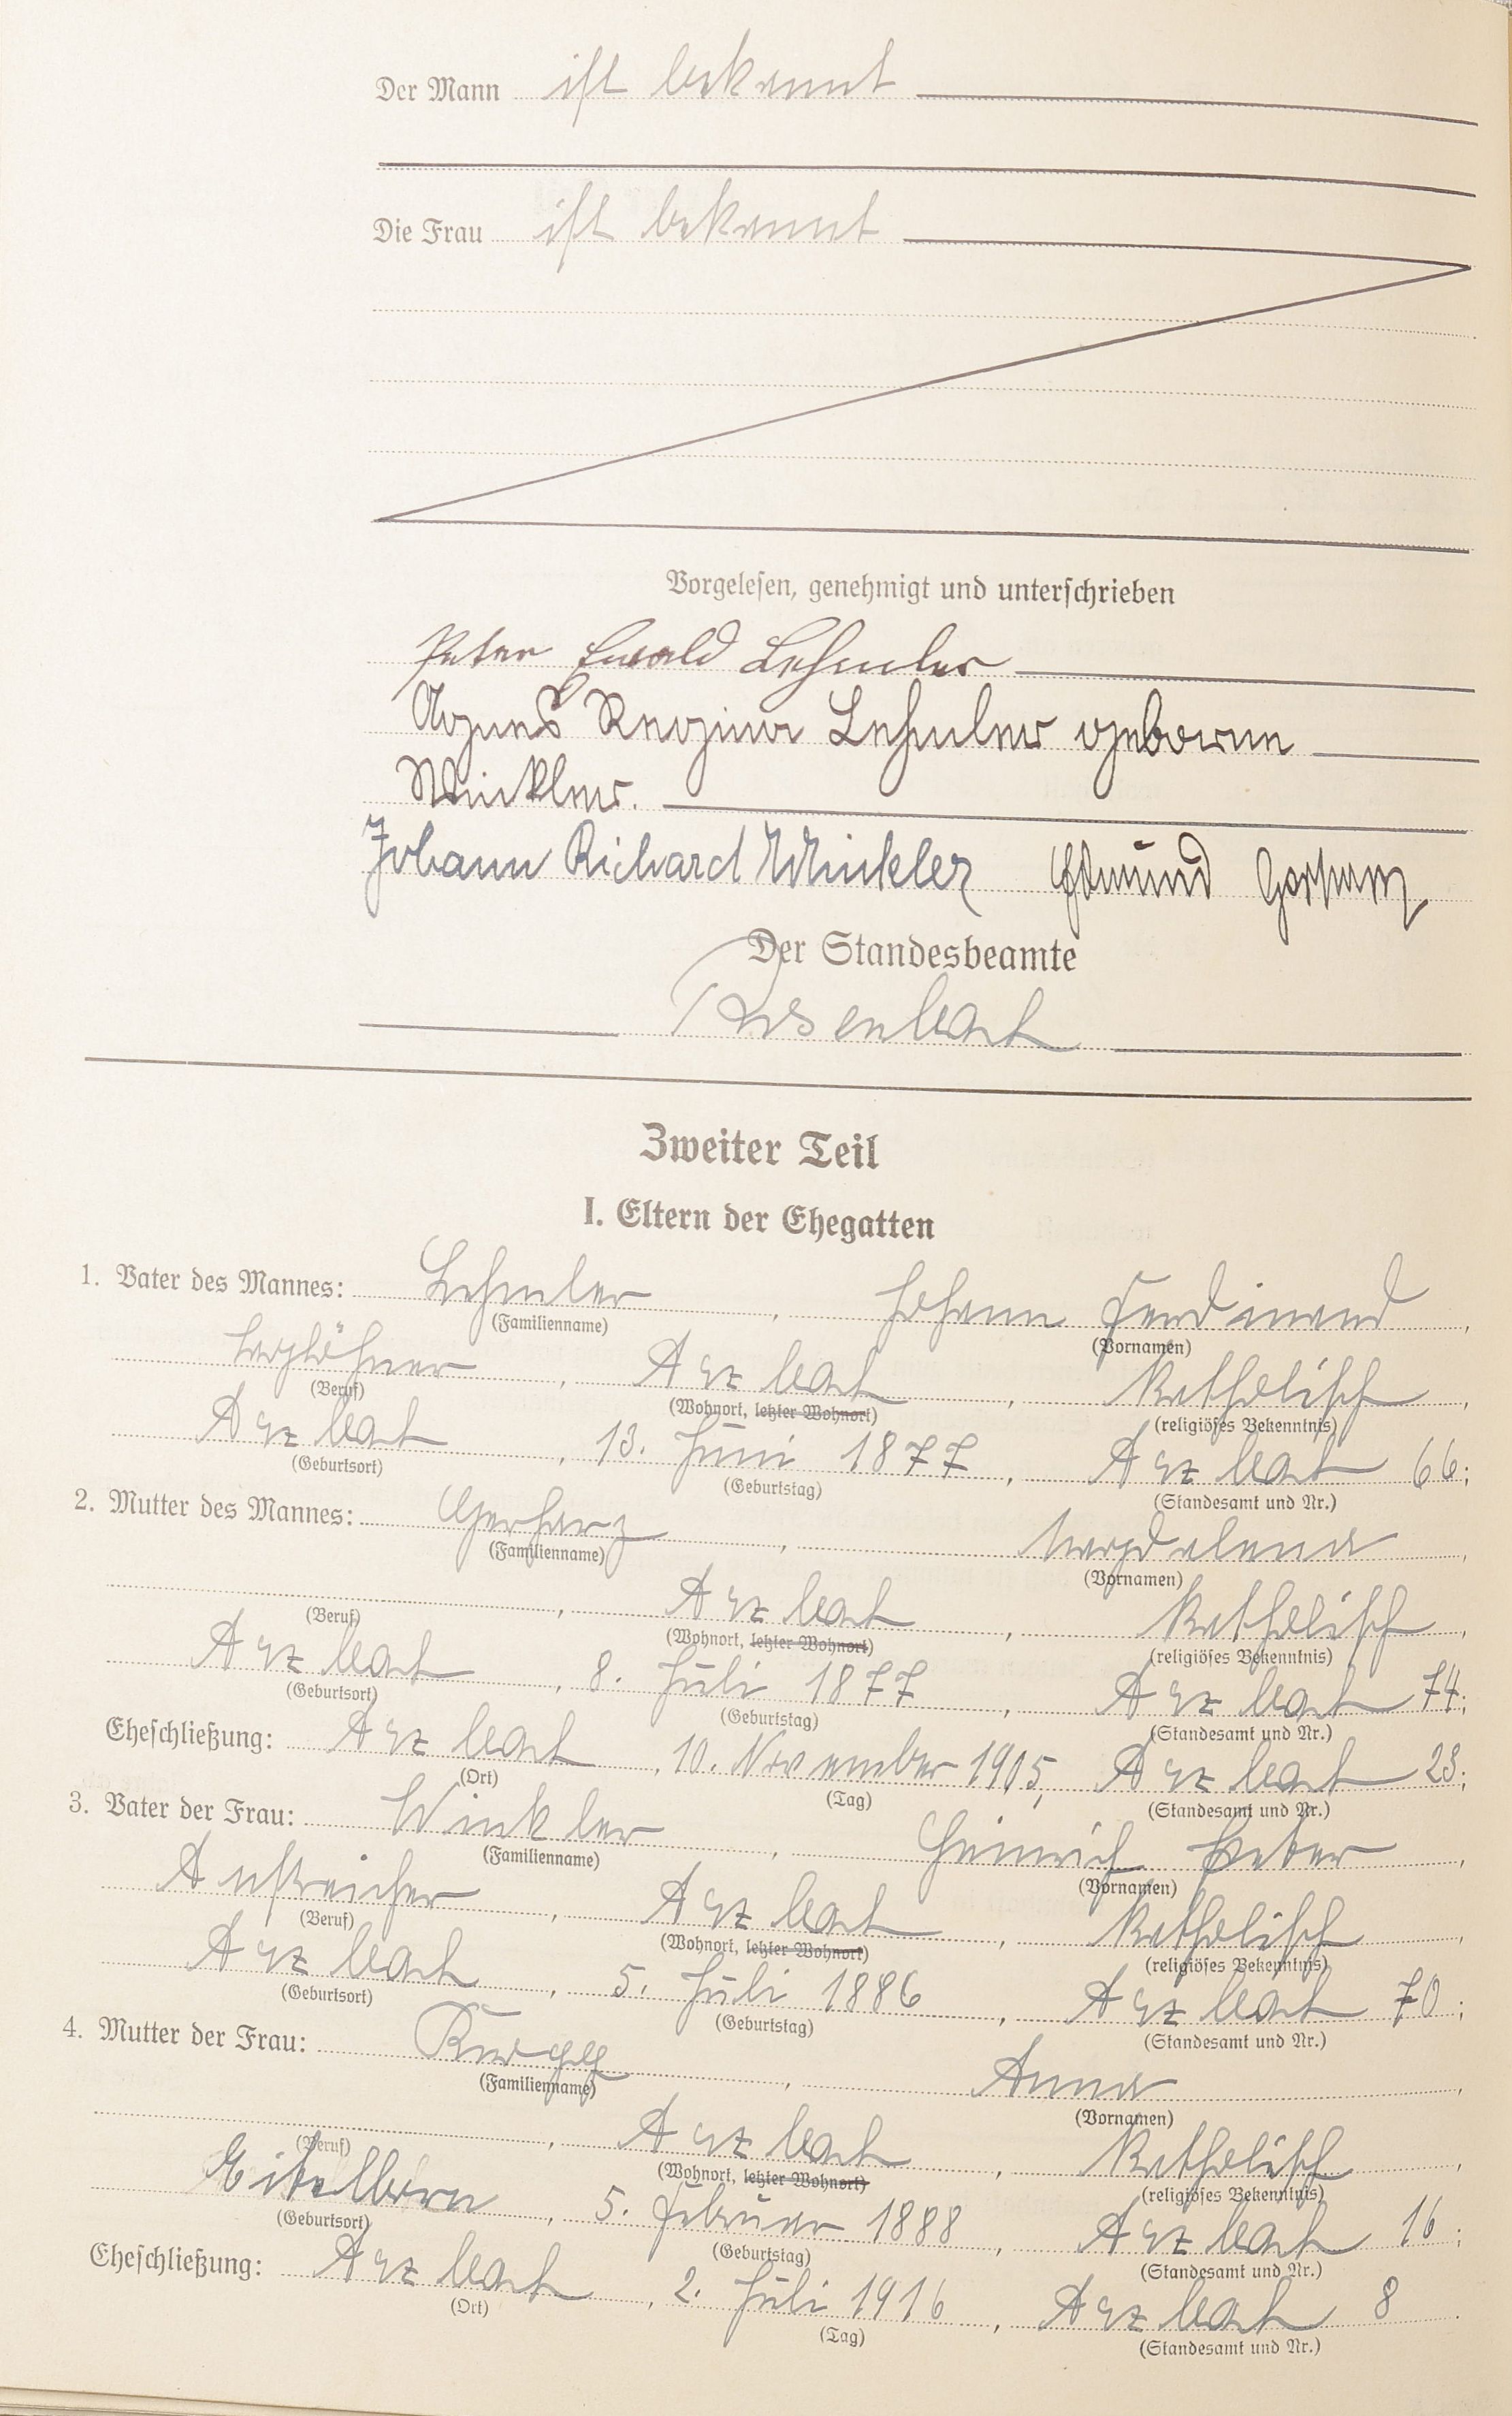 Der Mann ist bekannt
Die Frau ist bekannt
Vorgelesen, genehmigt und unterschrieben
Peter Ewald Lehmler
Agnes Regina Lehmler geborne
Winkler.
Johann Richard Winkler Edmund
Der Standesbeamte
Zweiter Teil
I. Eltern der Ehegatten
1. Vater des Mannes: Lehmler, Johann Ferdinand,
(Familienname) (Vornamen)
Taglöhner, Arzbach, katholisch,
(Beruf) (Wohnort, letzter Wohnort) (religiöses Bekenntnis)
Arzbach, 13. Juni 1877, Arzbach 66;
(Geburtsort) (Geburtstag) (Standesamt und Nr.)
2. Mutter des Mannes: Gerharz, Magdalena,
(Familienname) (Vornamen)
, Arzbach, katholisch,
(Beruf) (Wohnort, letzter Wohnort) (religiöses Bekenntnis)
Arzbach, 8. Juli 1877, Arzbach 74;
(Geburtsort) (Geburtstag) (Standesamt und Nr.)
Eheschließung: Arzbach, 10. November 1905, Arzbach 23;
(Ort) (Tag) (Standesamt und Nr.)
3. Vater der Frau: Winkler, Heinrich Peter,
(Familienname) (Vornamen)
Anstreicher, Arzbach, katholisch,
(Beruf) (Wohnort, letzter Wohnort) (religiöses Bekenntnis)
Arzbach, 5. Juli 1886, Arzbach 70;
(Geburtsort) (Geburtstag) (Standesamt und Nr.)
4. Mutter der Frau: Anna,
(Familienname) (Vornamen)
, Arzbach, katholisch,
(Beruf) (Wohnort, letzter Wohnort) (religiöses Bekenntnis)
Eitelborn, 5. Februar 1888, Arzbach 16;
(Geburtsort) (Geburtstag) (Standesamt und Nr.)
Eheschließung: Arzbach, 2. Juli 1916, Arzbach 8.
(Ort) (Tag) (Standesamt und Nr.)